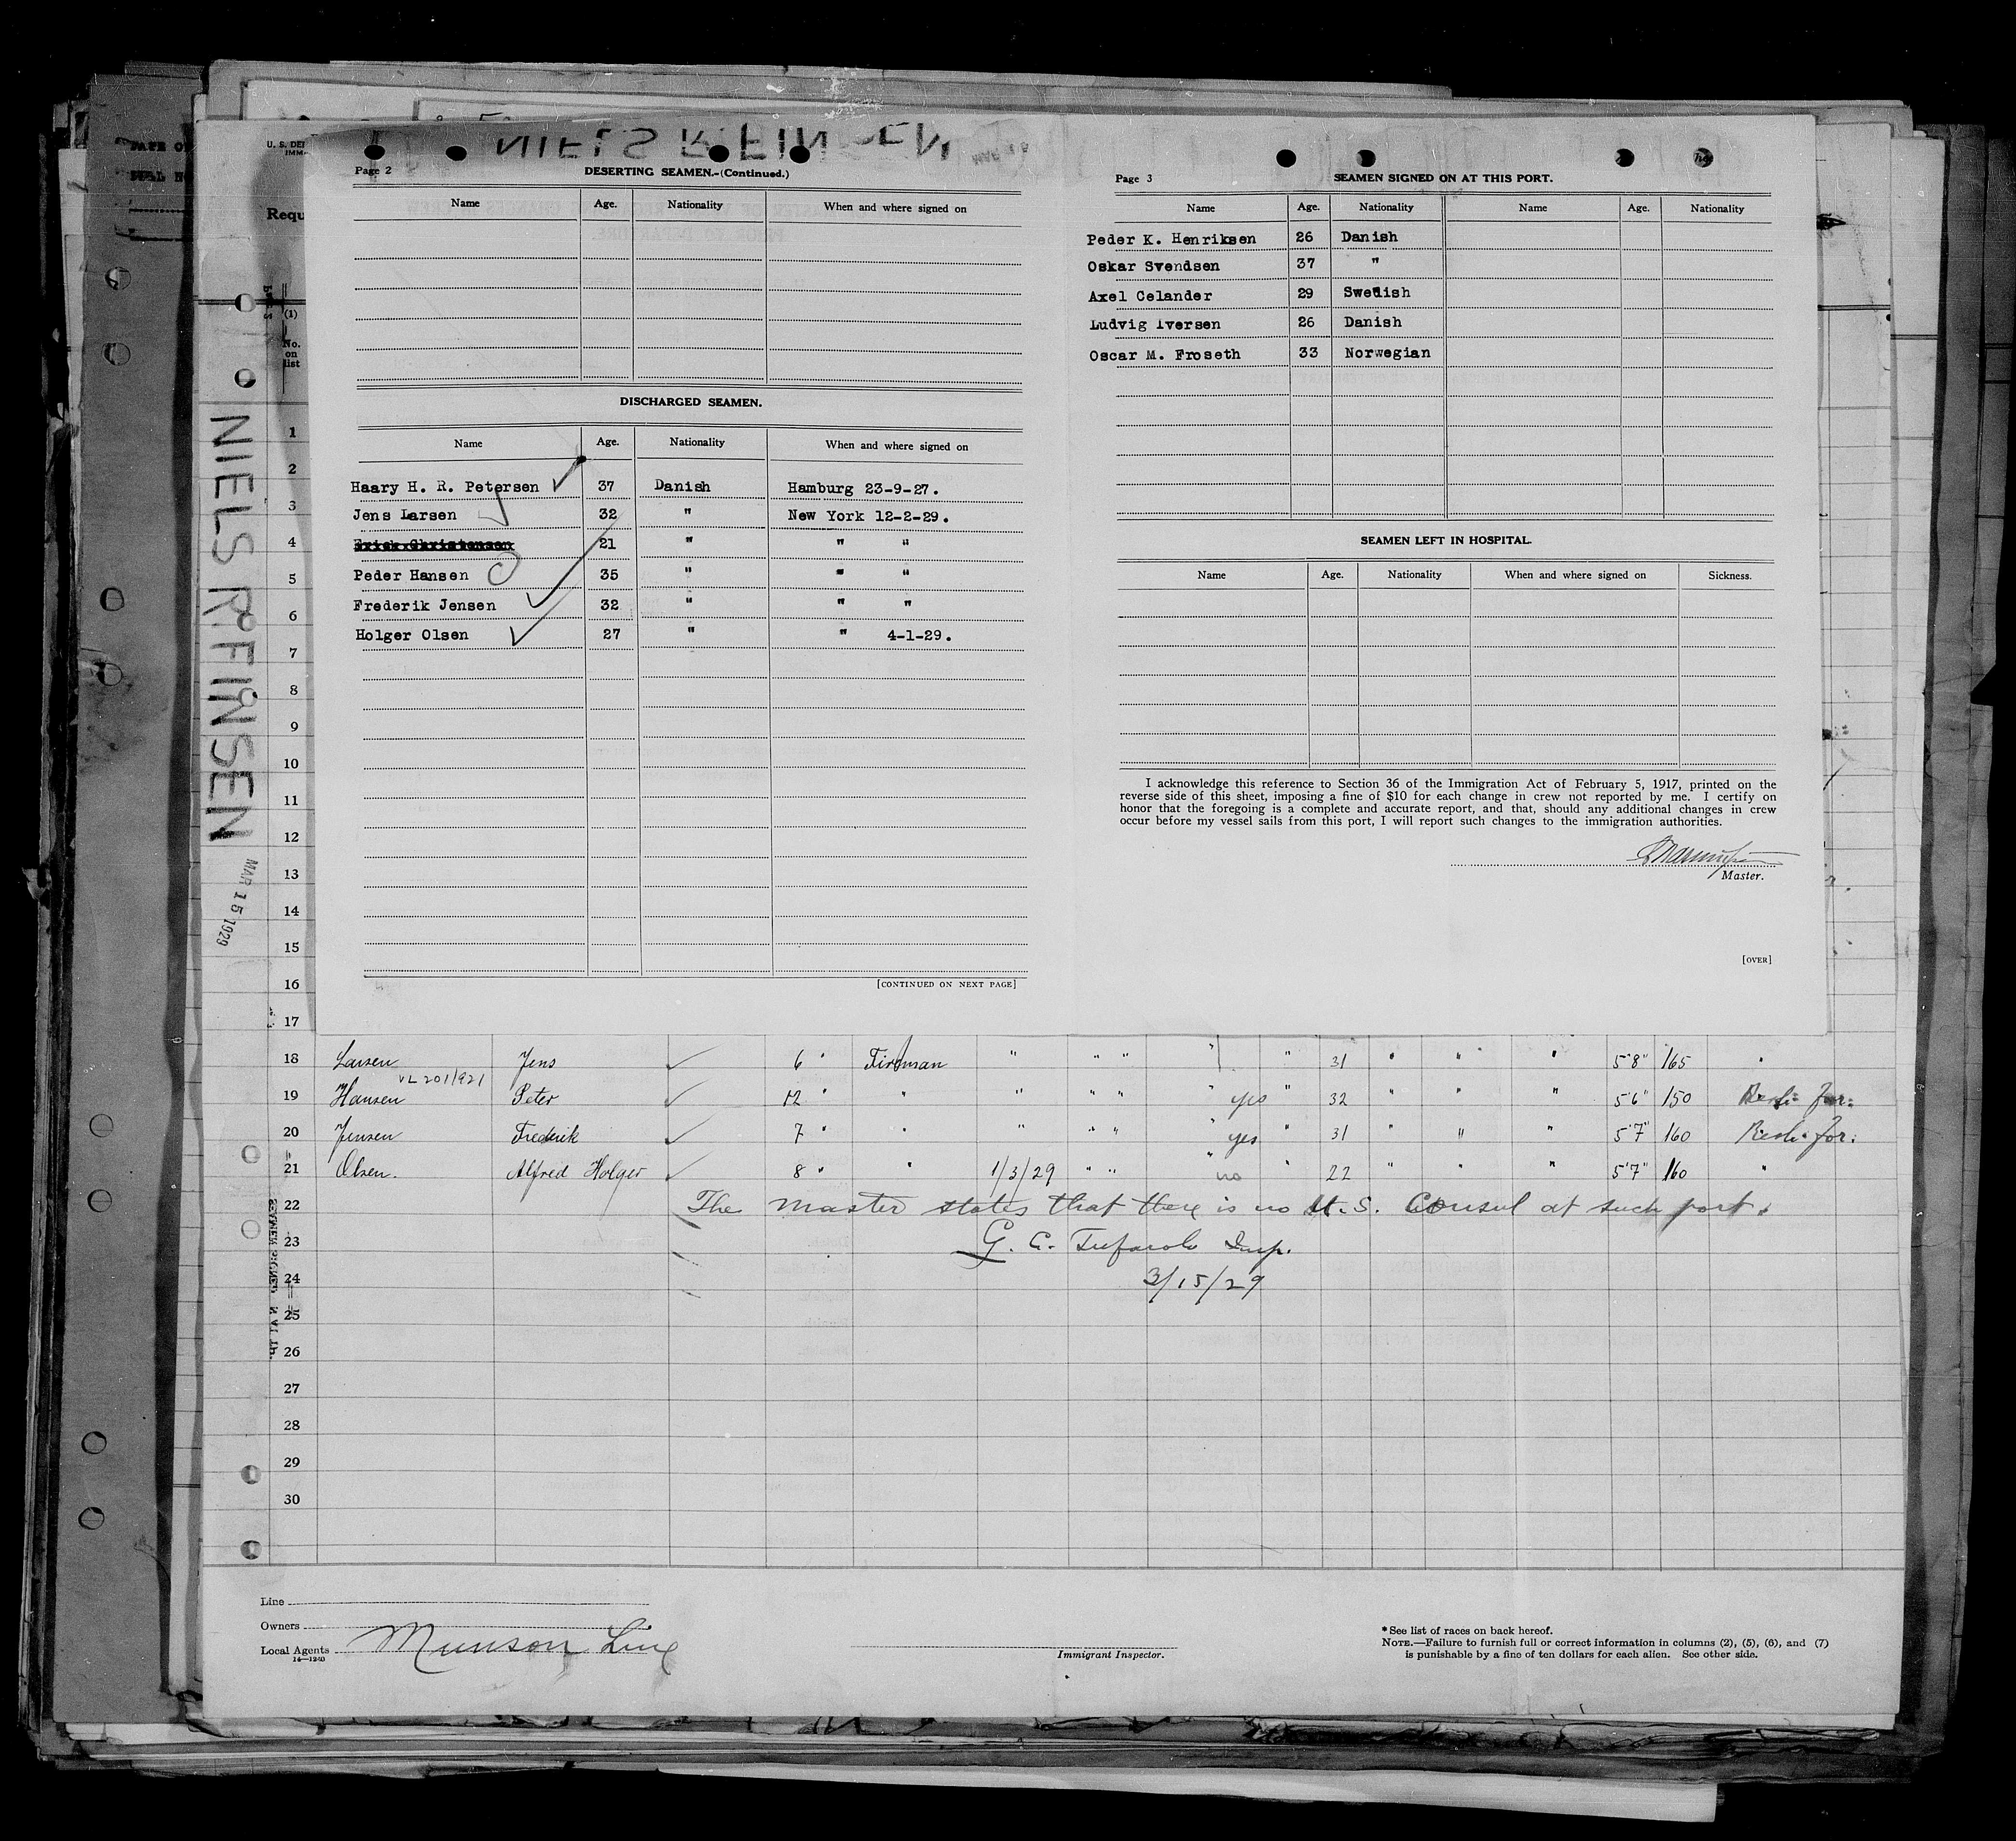 U. S. DE
Requ
(1)
No.
on
list
NIELS R FINSEN
MAR 15 1929
Page 2
DESERTING SEAMEN.-(Continued.)
Name Age. Nationality When and where signed on
DISCHARGED SEAMEN.
Name Age. Nationality When and where signed on
Haary H. R. Petersen 37 Danish Hamburg 23-9-27.
Jens Larsen 32 " New York 12-2-29.
Erick Christensen 21 " " "
Peder Hansen 35 " " "
Frederik Jensen 32 " " "
Holger Olsen 27 " " 4-1-29.
[CONTINUED ON NEXT PAGE]
Page 3
SEAMEN SIGNED ON AT THIS PORT.
Name Age. Nationality Name Age. Nationality
Peder K. Henriksen 26 Danish
Oskar Svendsen 37 "
Axel Celander 29 Swedish
Ludvig Iversen 26 Danish
Oscar M. Froseth 33 Norwegian
SEAMEN LEFT IN HOSPITAL.
Name Age. Nationality When and where signed on Sickness.
I acknowledge this reference to Section 36 of the Immigration Act of February 5, 1917, printed on the
reverse side of this sheet, imposing a fine of $10 for each change in crew not reported by me. I certify on
honor that the foregoing is a complete and accurate report, and that, should any additional changes in crew
occur before my vessel sails from this port, I will report such changes to the immigration authorities.
Master.
[OVER]
1
2
3
4
5
6
7
8
9
10
11
12
13
14
15
16
17
18 Larsen Jens 6 " Fireman " " " " " 31 " " " 5'8" 165 "
VL 201/921
19 Hansen Peter 12 " " " " " " yes " 32 " " " 5'6" 150
20 Jensen Frederik 7 " " " " " yes " 31 " " " 5'7" 160
21 Olsen. Alfred Holger 8 " " 1/3/29 " " no " 22 " " " 5'7" 160 "
22 The Master states that there is no U.S. Consul at such port.
23 G. C. Insp.
24 3/15/29
25
26
27
28
29
30
Line
Owners
Local Agents Munson Line
14—1240
Immigrant Inspector.
*See list of races on back hereof.
NOTE.—Failure to furnish full or correct information in columns (2), (5), (6), and (7)
is punishable by a fine of ten dollars for each alien. See other side.